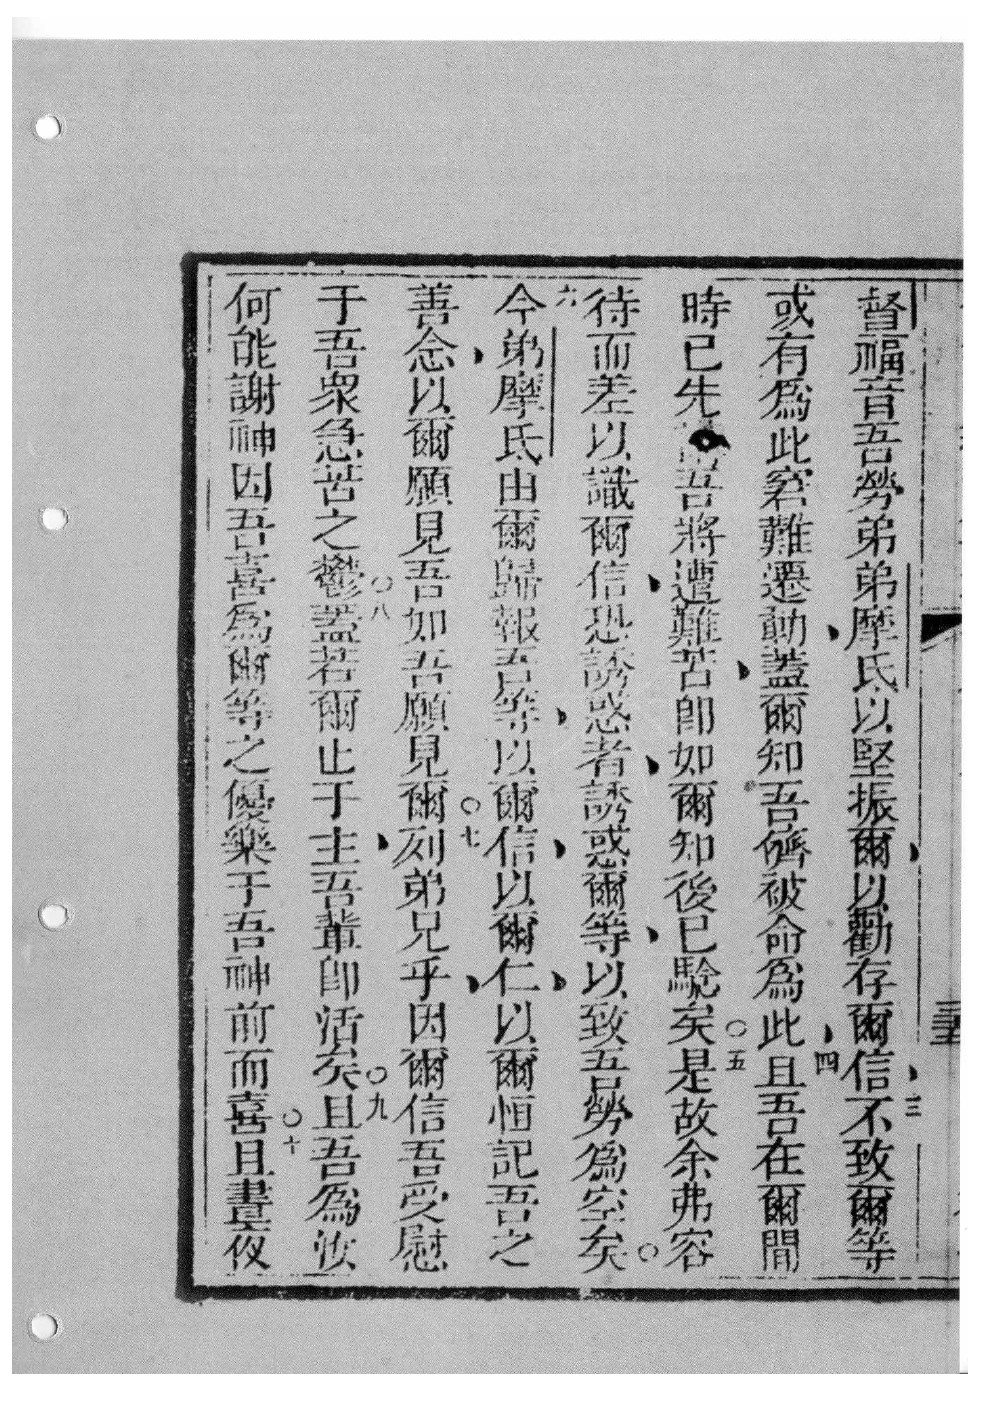 督福音吾勞弟弟摩氏以堅振爾以勸存爾信三不致爾等
或有爲此窘難遷動蓋爾知吾儕被命爲此四且吾在爾間
時已先吾將遭難苦卽如爾知後已驗矣○五是故余弗容
待而差以識爾信恐誘惑者誘惑爾等以致吾勞爲空矣○
六今弟摩氏由爾歸報吾等以爾信以爾仁以爾恒記吾之
善念以爾願見吾如吾願見爾○七列弟兄乎因爾信吾受慰
于吾衆急苦之鬱○八蓋若爾止于主吾輩卽活矣○九且吾爲汝
何能謝神因吾喜爲爾等之優樂于吾神前而喜○十且晝夜